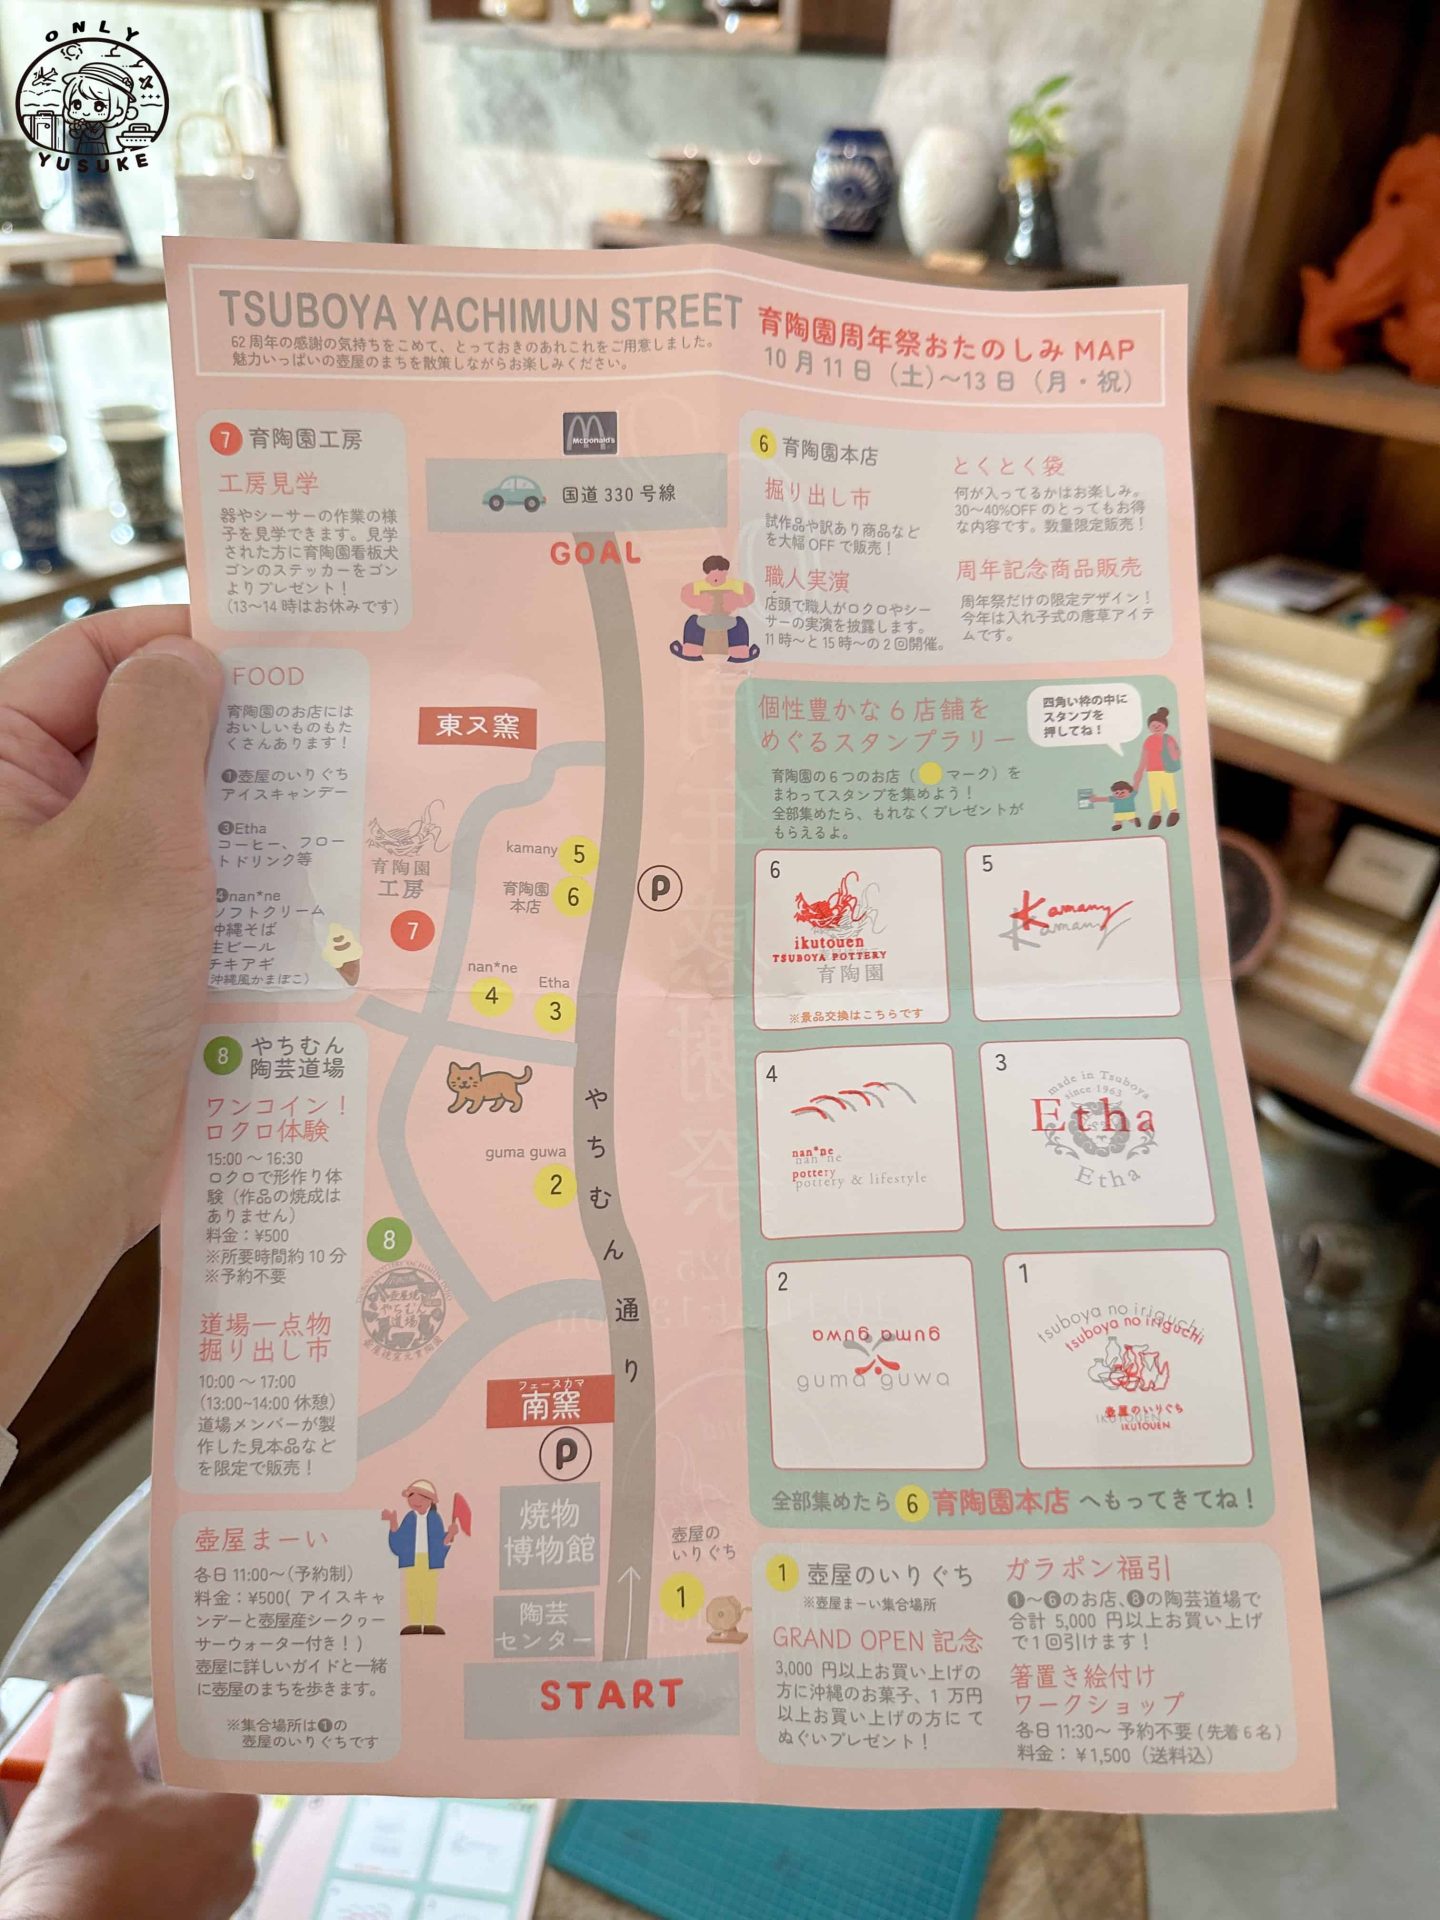 ONLY
YUSUKE
TSUBOYA YACHIMUN STREET
62周年の感謝の気持ちをこめて、とっておきのあれこれをご用意しました。
魅力いっぱいの壺屋のまちを散策しながらお楽しみください。
育陶園周年祭おたのしみ MAP
10月11日（土）～13日（月・祝）
7 育陶園工房
工房見学
器やシーサーの作業の様
子を見学できます。見学
された方に育陶園看板犬
ゴンのステッカーをゴン
よりプレゼント！
（13～14時はお休みです）
FOOD
育陶園のお店には
おいしいものもた
くさんあります！
❶壺屋のいりぐち
アイスキャンデー
❸Etha
コーヒー、フロー
トドリンク等
❹nan*ne
ソフトクリーム
沖縄そば
生ビール
チキアギ
（沖縄風かまぼこ）
8 やちむん
陶芸道場
ワンコイン！
ロクロ体験
15:00 ～ 16:30
ロクロで形作り体
験（作品の焼成は
ありません）
料金：¥500
※所要時間約10分
※予約不要
道場一点物
掘り出し市
10:00 ～ 17:00
（13:00~14:00 休憩）
道場メンバーが製
作した見本品など
を限定で販売！
壺屋まーい
各日 11:00～（予約制）
料金：¥500( アイスキャ
ンデーと壺屋産シークヮー
サーウォーター付き！)
壺屋に詳しいガイドと一緒
に壺屋のまちを歩きます。
※集合場所は❶の
壺屋のいりぐちです
McDonald's
国道 330 号線
GOAL
東ヌ窯
育陶園
工房
7
kamany 5
育陶園
本店 6
P
nan*ne
4
Etha
3
guma guwa
2
やちむん通り
8
壺屋焼
やちむん
道場
フェーヌカマ
南窯
P
焼物
博物館
陶芸
センター
壺屋の
いりぐち
1
START
6 育陶園本店
掘り出し市
試作品や訳あり商品など
を大幅 OFF で販売！
職人実演
店頭で職人がロクロやシー
サーの実演を披露します。
11時～と15時～の2回開催。
とくとく袋
何が入ってるかはお楽しみ。
30～40%OFF のとってもお得
な内容です。数量限定販売！
周年記念商品販売
周年祭だけの限定デザイン！
今年は入れ子式の唐草アイテ
ムです。
個性豊かな 6 店舗を
めぐるスタンプラリー
四角い枠の中に
スタンプを
押してね！
育陶園の6つのお店（ マーク）を
まわってスタンプを集めよう！
全部集めたら、もれなくプレゼントが
もらえるよ。
6
ikutouen
TSUBOYA POTTERY
育陶園
※景品交換はこちらです
5
Kamany
Kamany
4
nan*ne
nan*ne
pottery
pottery & lifestyle
3
made in Tsuboya
since 1963
Etha
Etha
2
guma guwa
guma guwa
1
tsuboya no iriguchi
tsuboya no iriguchi
壺屋のいりぐち
IKUTOUEN
IKUTOUEN
全部集めたら 6 育陶園本店 へもってきてね！
1 壺屋のいりぐち
※壺屋まーい集合場所
GRAND OPEN 記念
3,000 円以上お買い上げの
方に沖縄のお菓子、1 万円
以上お買い上げの方に て
ぬぐいプレゼント！
ガラポン福引
❶～❻のお店、❽の陶芸道場で
合計 5,000 円以上お買い上げ
で1回引けます！
箸置き絵付け
ワークショップ
各日 11:30～ 予約不要 (先着6名)
料金：¥1,500（送料込）